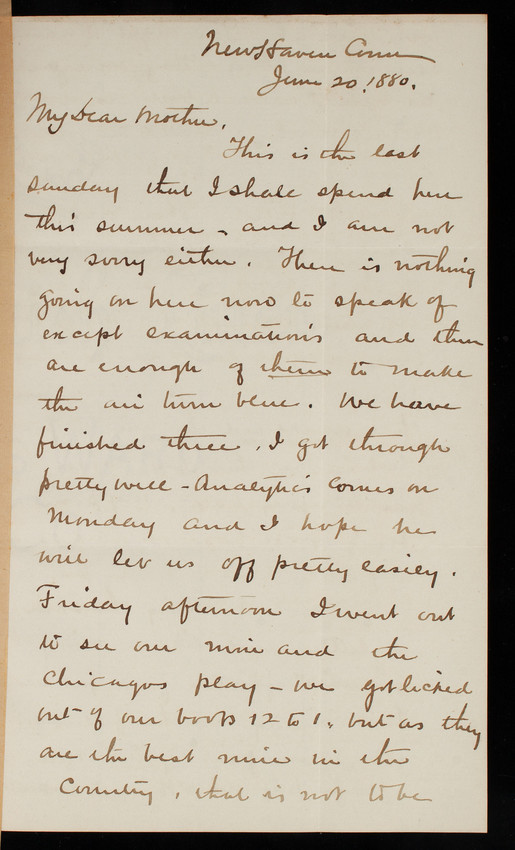 New Haven Conn
June 20, 1880.
My Dear Mother,
This is the last
sunday that I shall spend here
this summer - and I am not
very sorry either. There is nothing
going on here now to speak of
except examinations and there
are enough of them to make
the air turn blue. We have
finished three, I got through
pretty well - Analytics comes on
Monday and I hope he
will let us off pretty easily.
Friday afternoon I went out
to see our nine and the
Chicagos play - we got licked
out of our boots 12 to 1, but as they
are the best nine in the
country, that is not to be